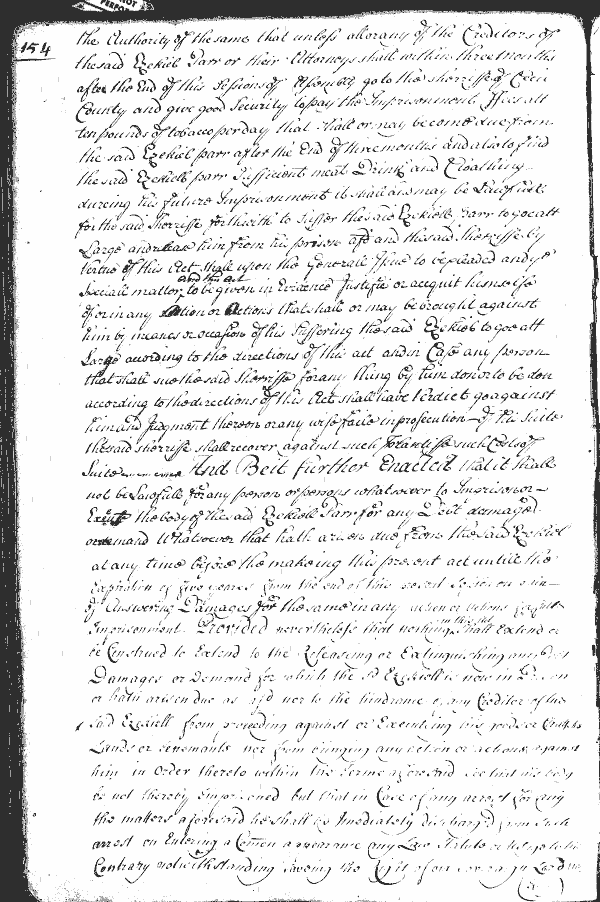 154
the Authority of the same that unless all or any of the Creditors of
the said Ezekiel Parr or their Attorneys shall within three months
after the End of this Sessions of Assembly go to the sherriffe of Cecil
County and give good Security to pay the Imprisonment ffees att
ten pounds of tobacco per day that shall or may become due from
the said Ezekiel parr after the End of three months and also to find
the said Ezekiell parr sufficient meat Drink and Cloathing
dureing his future Imprisonment it shall and may be Lawfull
for the said Sherriffe forthwith to suffer the said Ezekiell Parr to goe att
Large and release him from his prison afd and the said Sherriffe by
Vertue of this Act shall upon the Generall Issue to be pleaded and ye
Speciall matter and this act to be given in Evidence Justifie or acquit himselfe
of or in any Action or Actions that shall or may be brought against
him by means or occasion of his suffering the said Ezekiel to goe att
Large according to the directions of this act and in Case any person
that shall sue the said Sherriffe for any thing by him don or to be don
according to the directions of this Act shall have Verdict go against
him and Judgment thereon or any wise faile in prosecution of his Suite
the said sherriffe shall recover against such plantiffe such Costs of
Suite And Be it further Enacted that it shall
not be Lawfull for any person or persons whatsoever to Imprison or
the body of the said Ezekiell Parr for any Debt damages
or demand Whatsoever that hath arisen due from the said Ezekiel
at any time before the makeing this present act untill the
Expiration of five yeares from the end of this present Session
of Answering Damages for the same in any action or actions
Imprisonment Provided nevertheless that nothing in this act shall Extend or
be Construed to Extend to the Releasing or Extinguishing any Debt
Damages or Demand for which the sd Ezekiell is now in Prison
or hath arisen due as afd nor to the hindrance of any Creditor of the
said Ezekiell from proceeding against or Executing his goods or Chattles
Lands or tenements nor from bringing any action or actions against
him in Order thereto within the Terme aforesaid soe that his body
be not thereby Imprisoned but that in Case of any arrest for any
the matters aforesaid he shall be Imediately discharged from such
arrest on Entering a Comon appearance any Law Statute or usage to the
Contrary notwithstanding saveing the Right of our